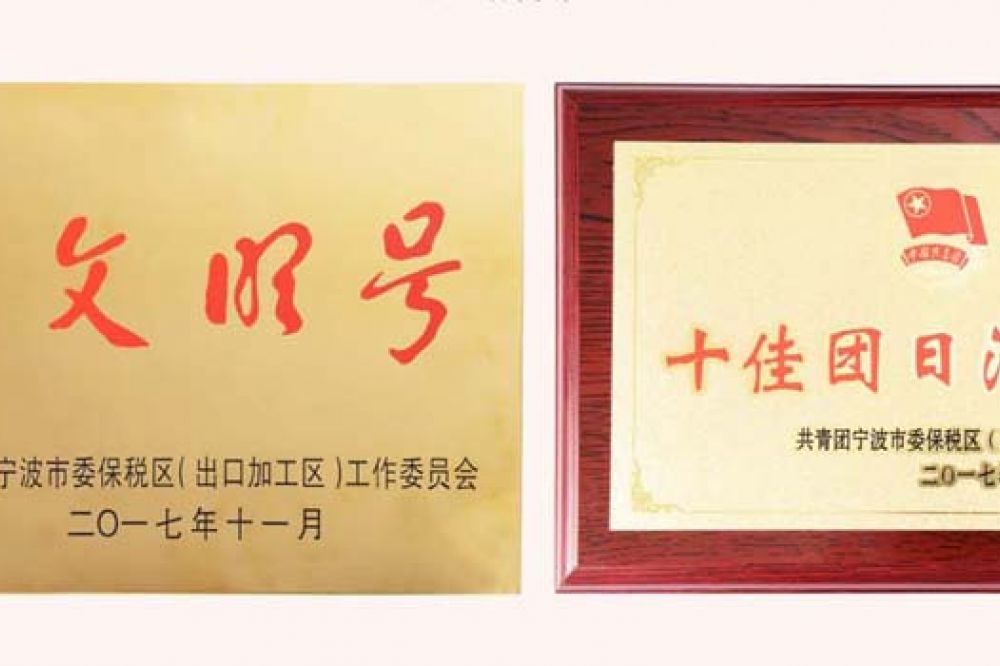 文明号
宁波市委保税区(出口加工区)工作委员会
二〇一七年十一月
中国共青团
十佳团日
共青团宁波市委保税区(
二〇一七